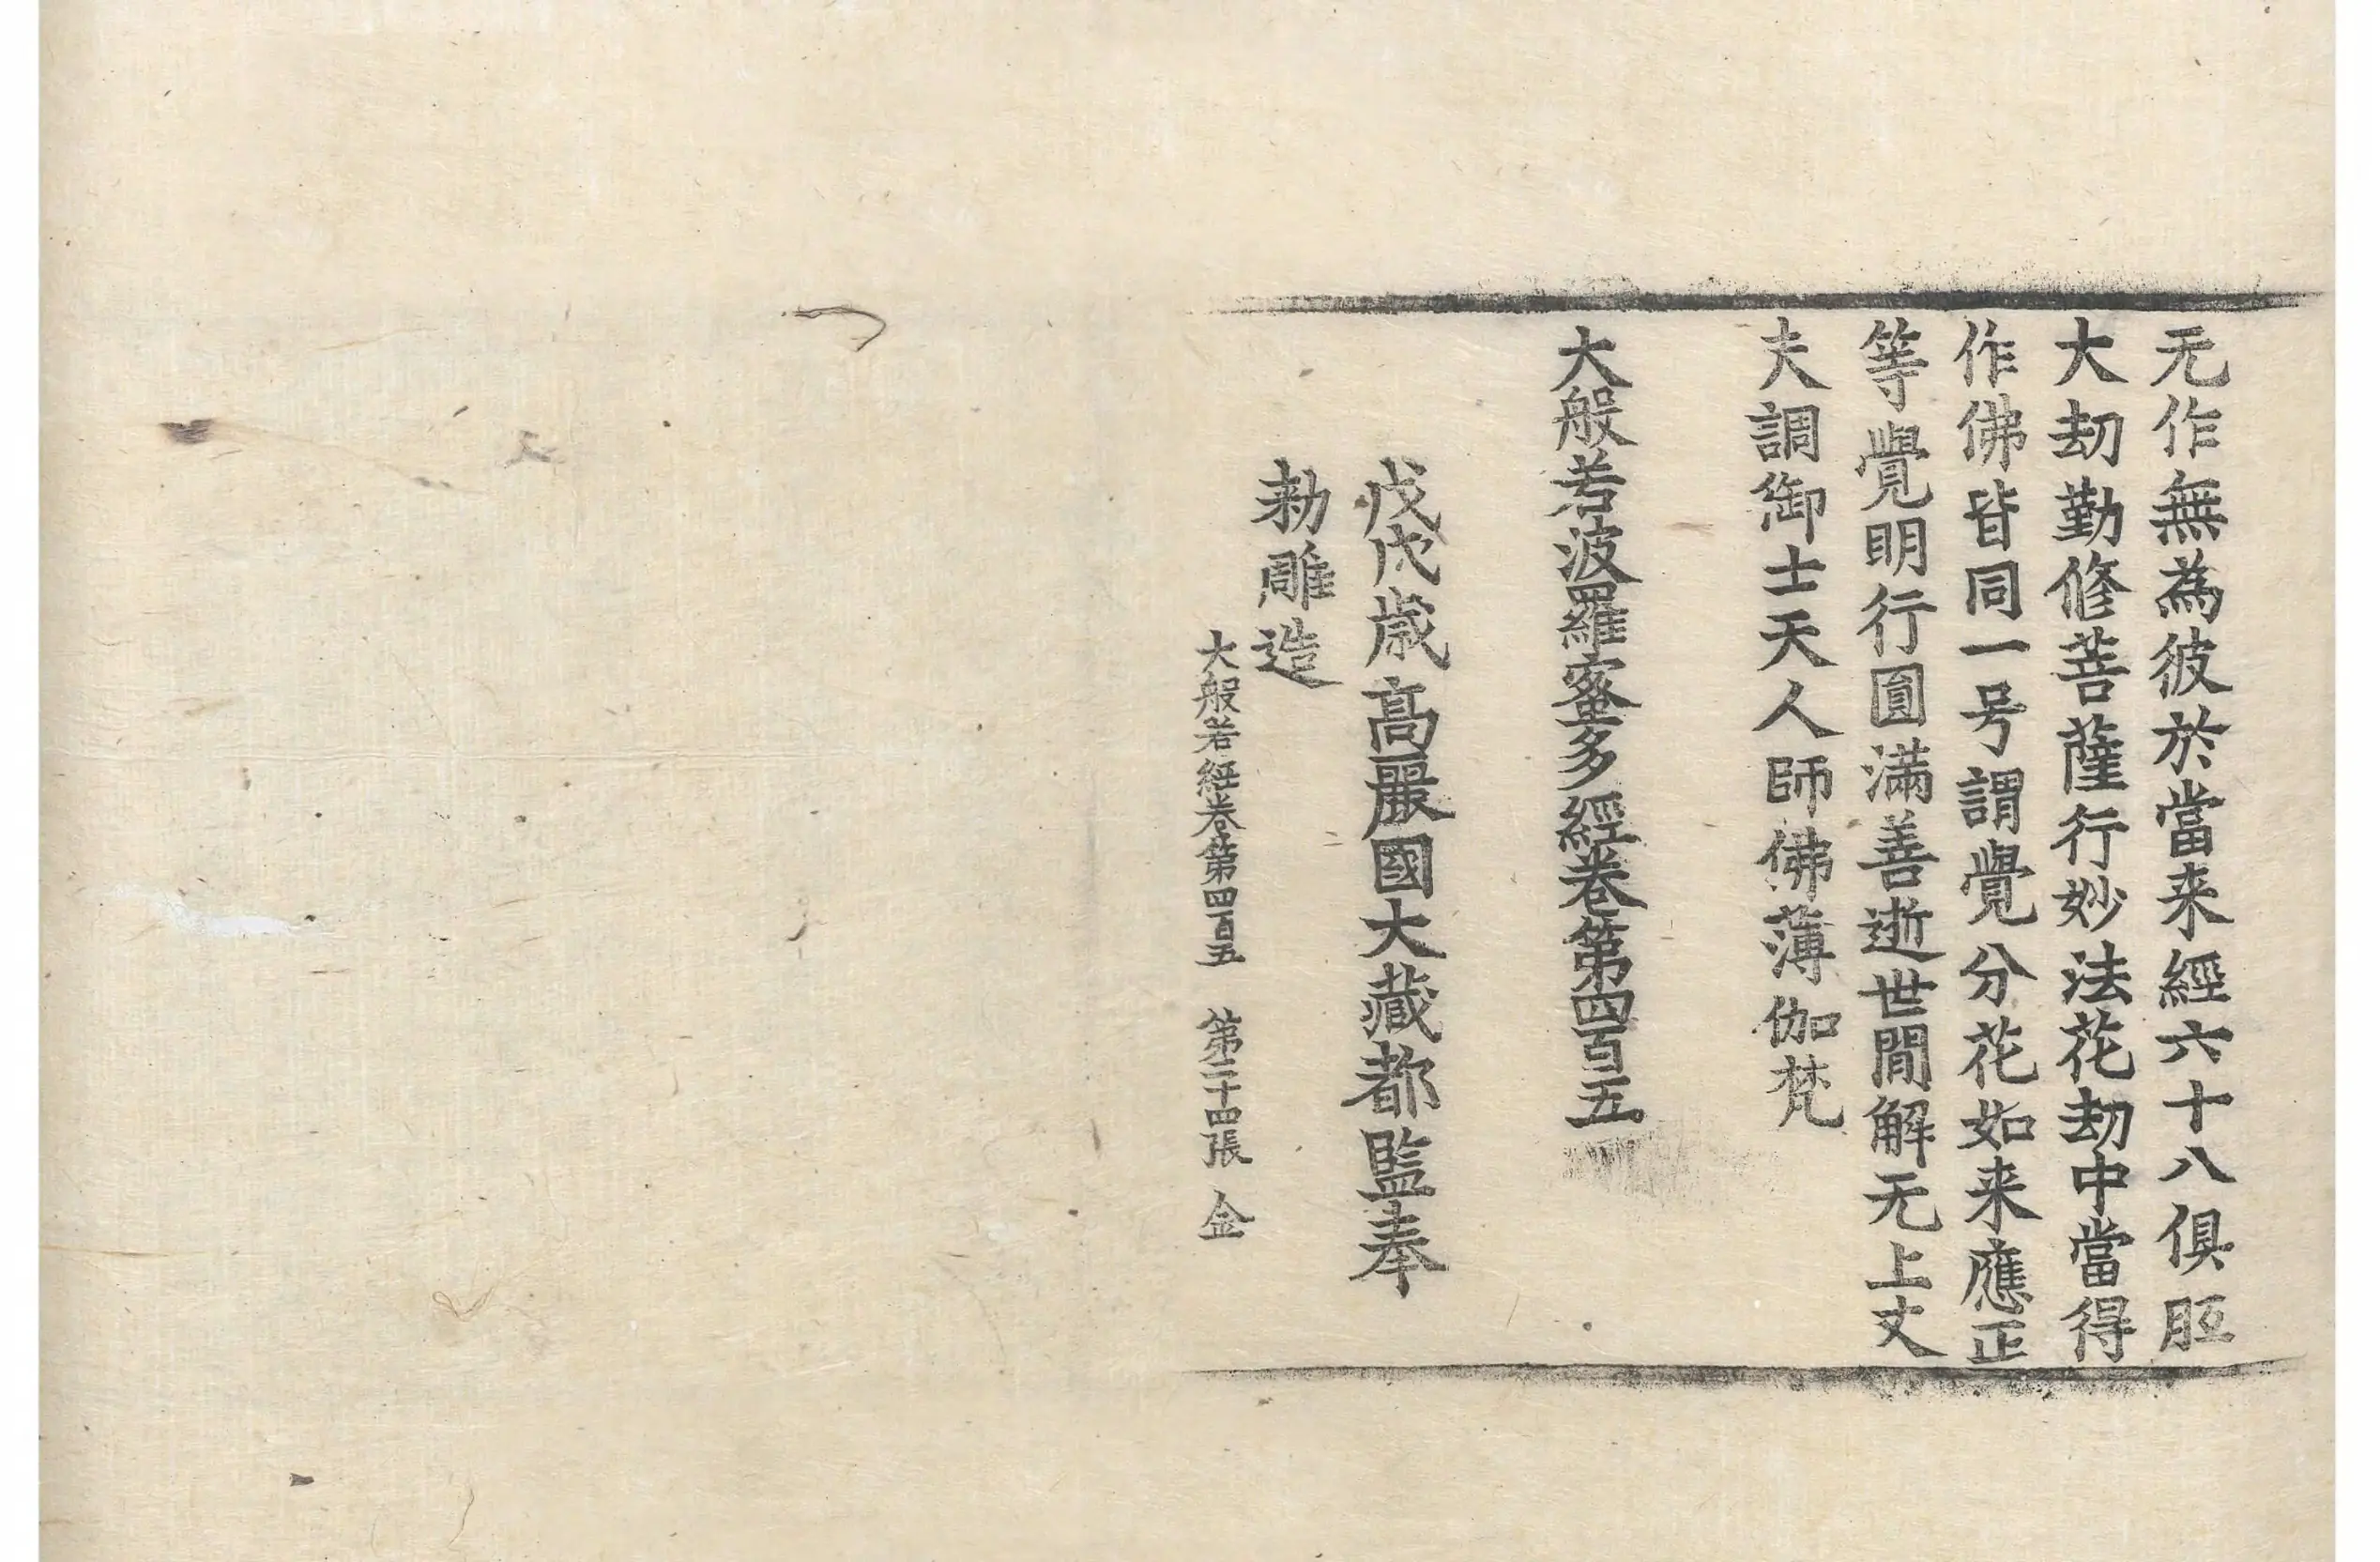 无作無為彼於當来經六十八俱胝
大劫勤修菩薩行妙法花劫中當得
作佛皆同一号謂覺分花如来應正
等覺明行圓滿善逝世間解无上丈
夫調御士天人師佛薄伽梵
大般若波羅蜜多經卷第四百五
戊戌歲高麗國大藏都監奉
勑雕造
大般若經卷第四百五　第二十四張　金